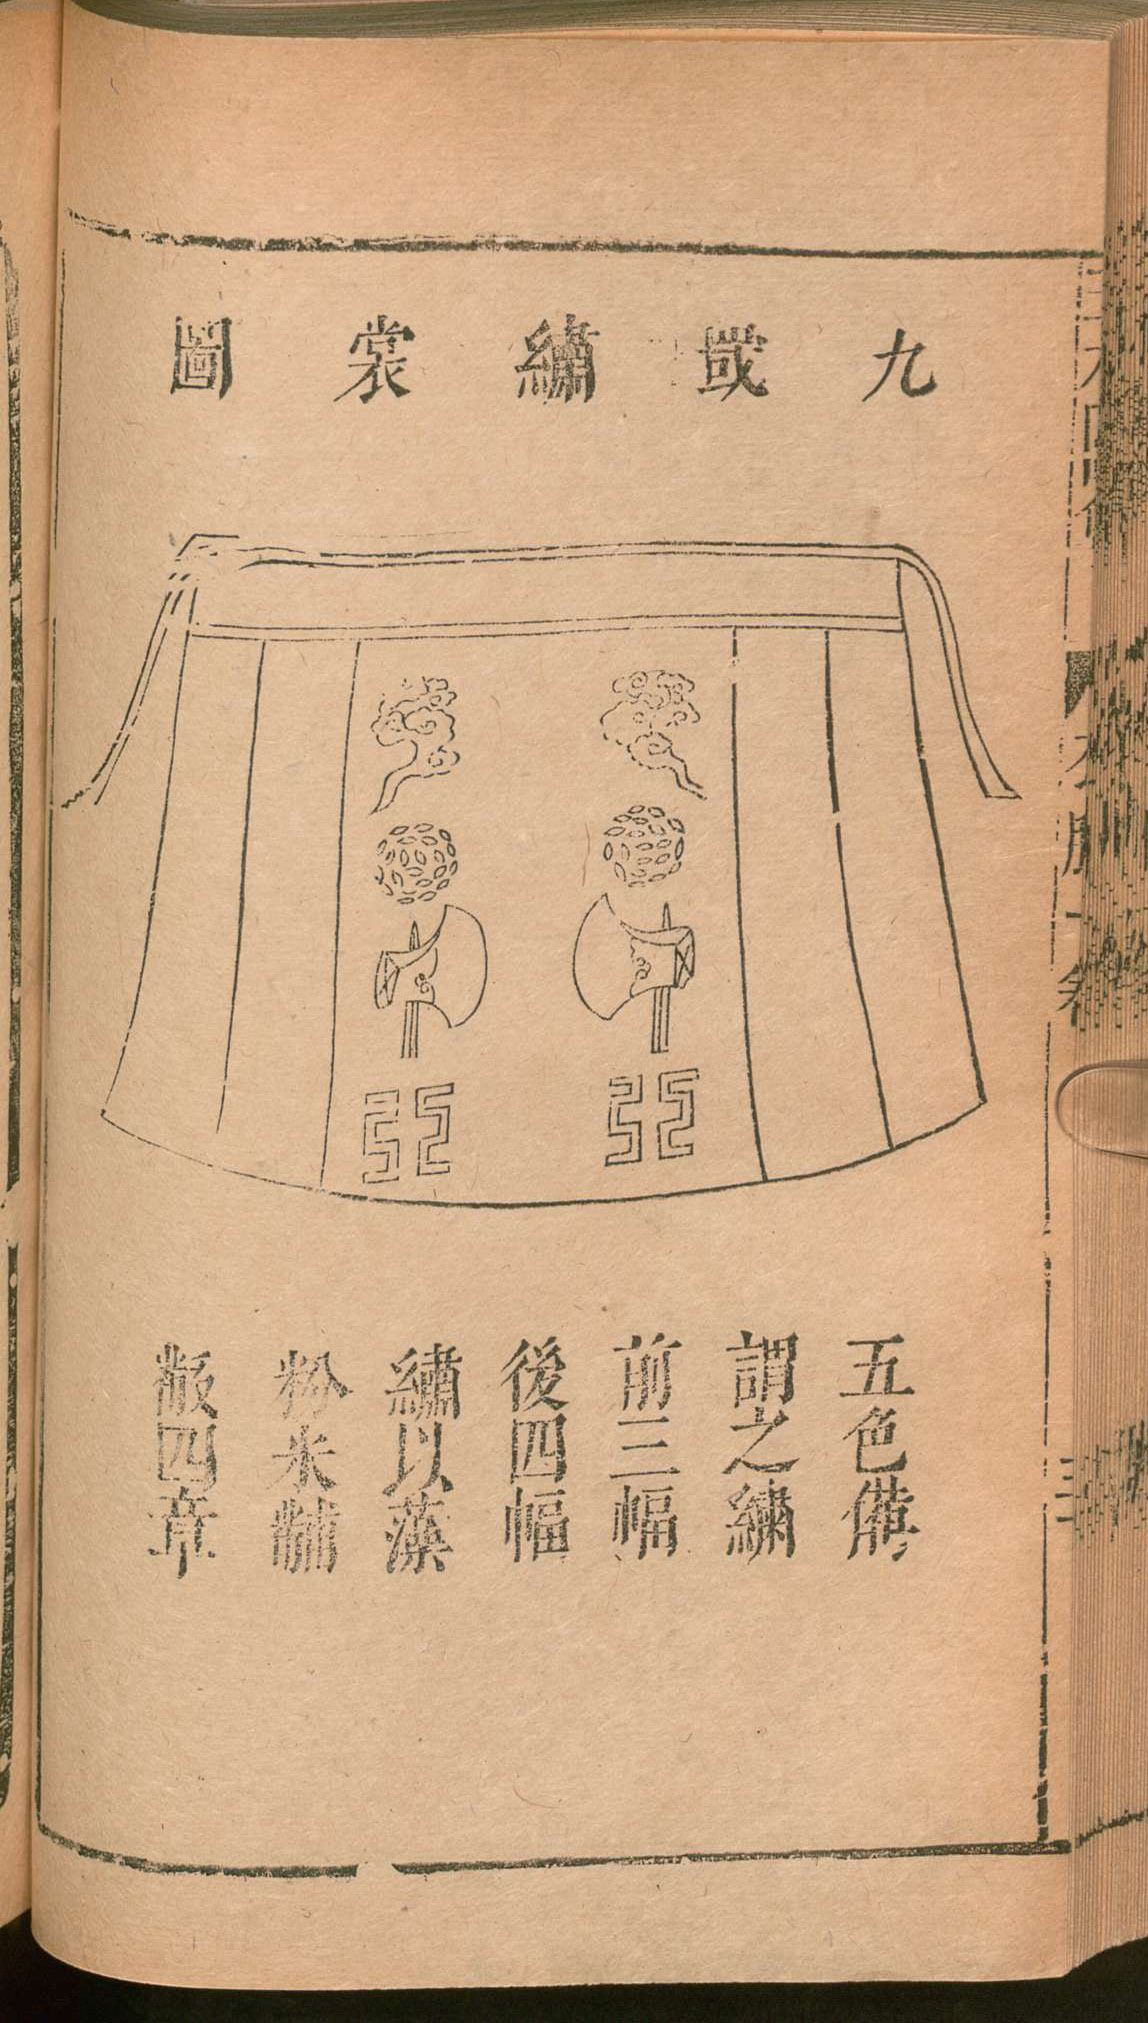 九罭繡裳圖
五色備
謂之繡
前三幅
後四幅
繡以藻
粉米黼
黻四章